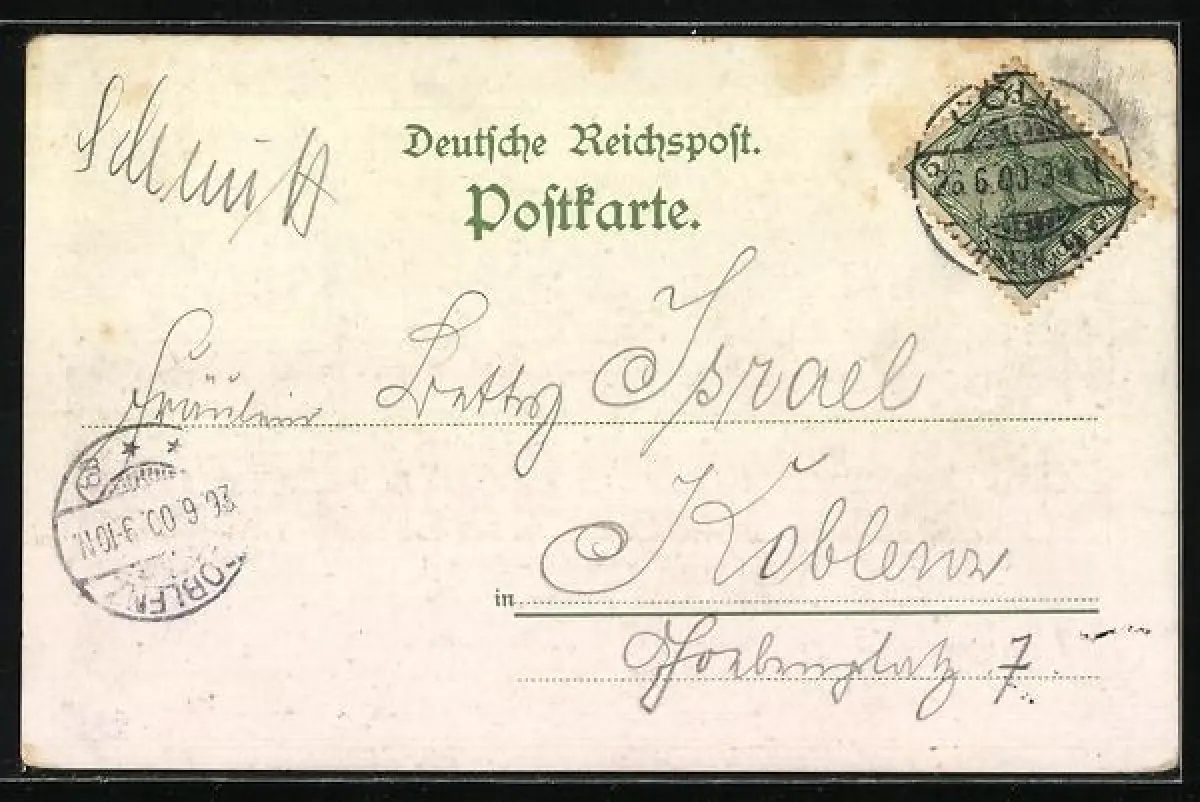 Schmitt
Deutsche Reichspost.
Postkarte.
5
26.6.00.3-4 N
Fräulein Betty Israel
26.6.00.9-10N.
COBLENZ
in Koblenz
Goebenplatz 7.